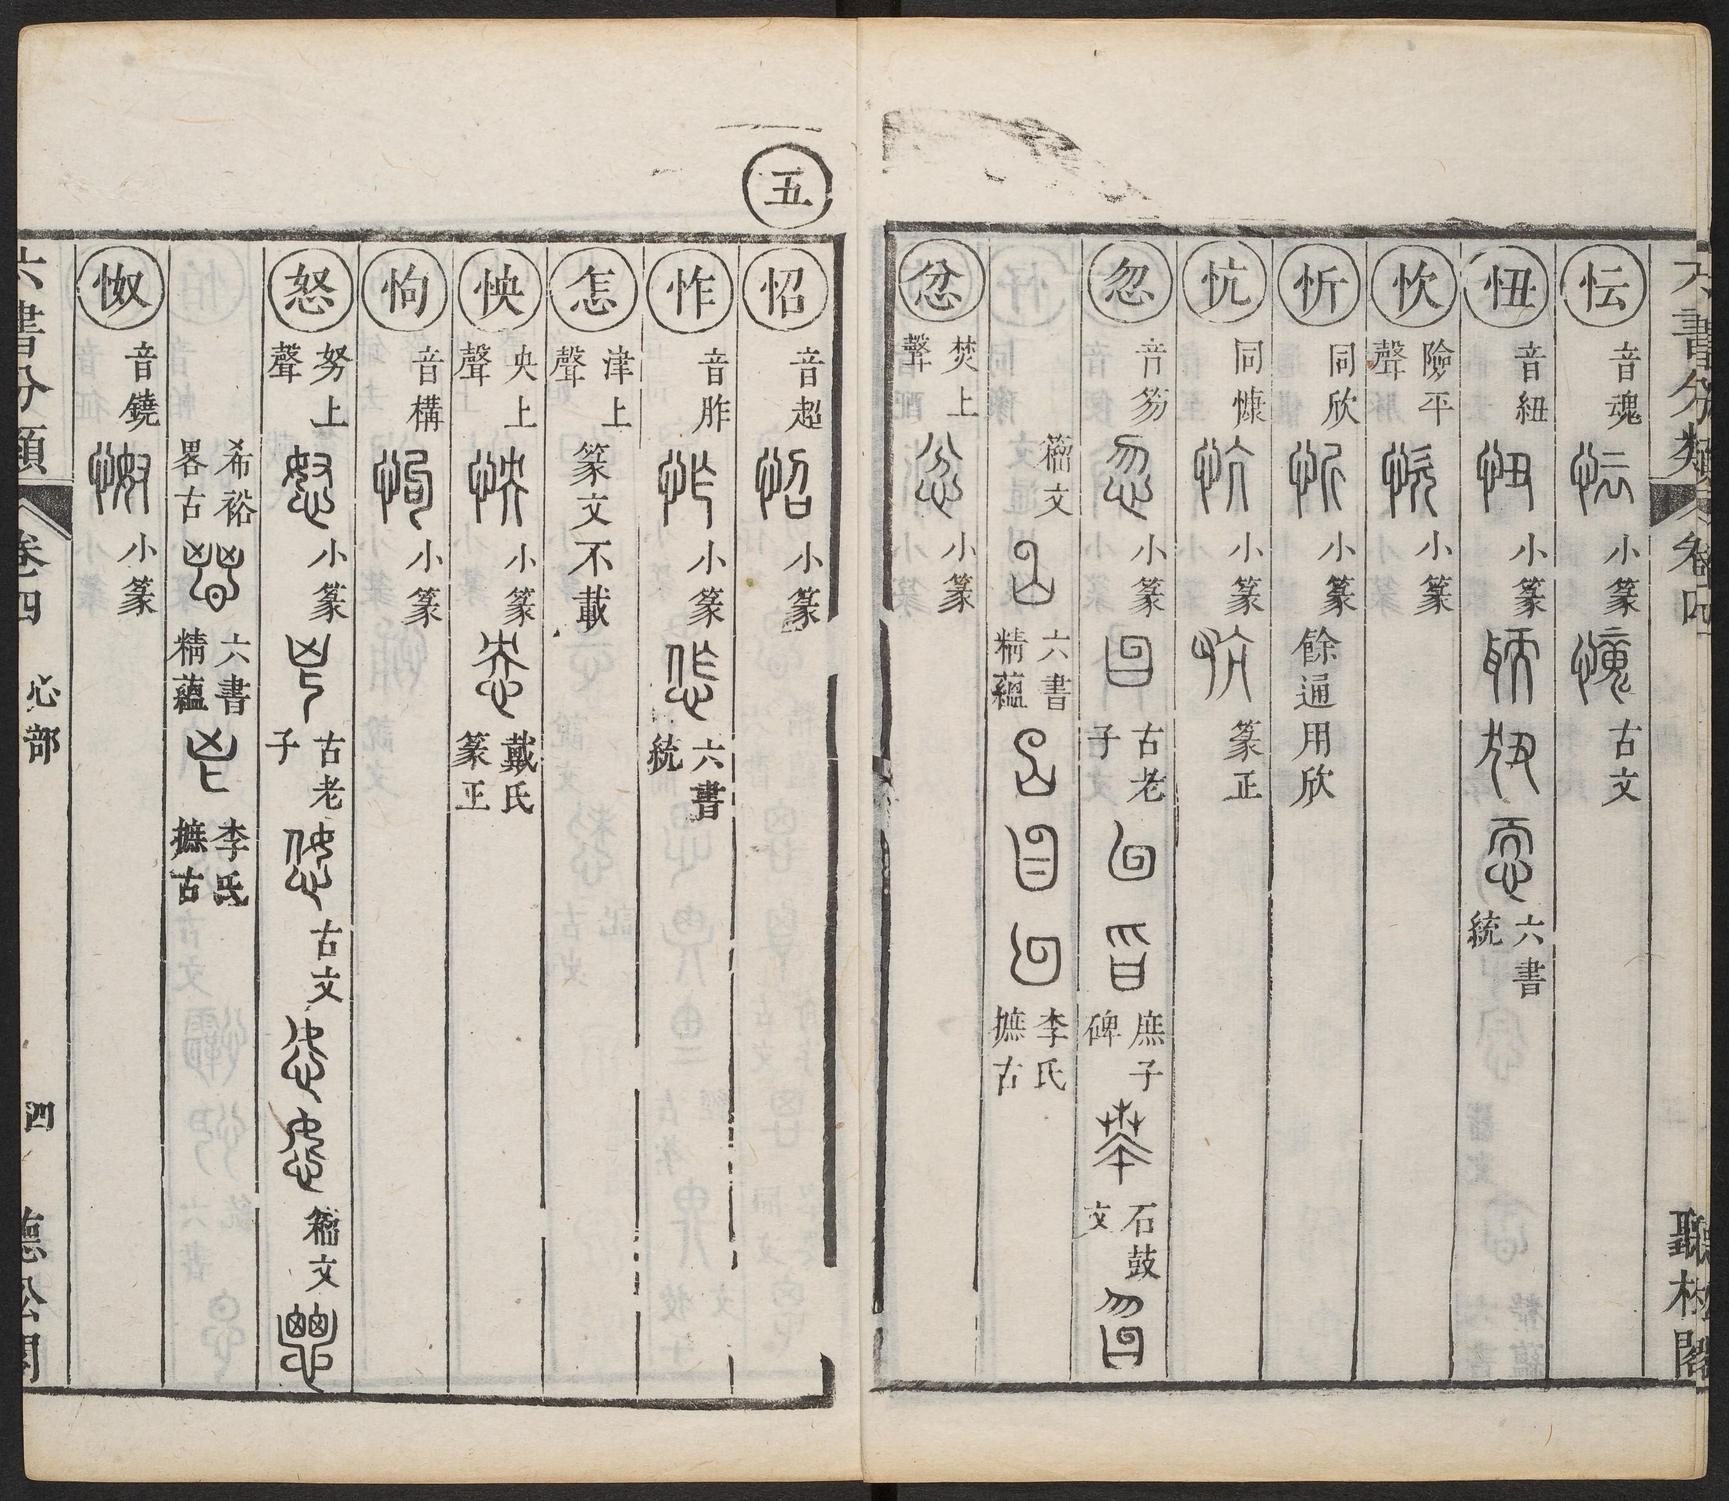 六書分類 卷四 聽松閣
忶 音魂 小篆 古文
忸 音紐 小篆 六書統
忺 險平聲 小篆
忻 同欣 小篆 餘通用欣
忼 同慷 小篆 篆正
忽 音笏 小篆 古老子 庶子碑 石鼓文
籀文 六書精蘊 李氏摭古
忿 焚上聲 小篆
五
怊 音超 小篆
怍 音胙 小篆 六書統
怎 津上聲 篆文不載
怏 央上聲 小篆 戴氏篆正
怐 音構 小篆
怒 努上聲 小篆 古老子 古文 籀文
希裕畧古 六書精蘊 李氏摭古
怓 音鐃 小篆
六書分類 卷四 心部 四 聽松閣